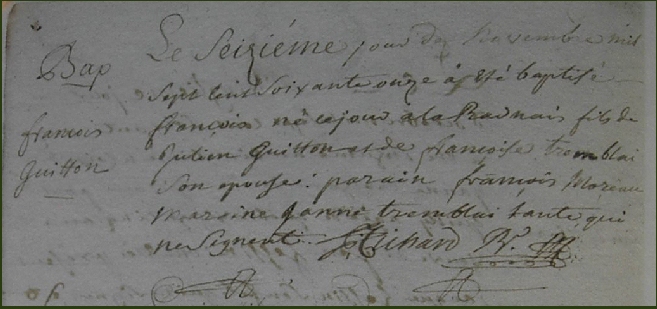 Bap
françois
Guitton
Le Seiziéme jour de Novembre mil
Sept Cent Soixante onze à été baptisé
françois né cejour a la Pradnais fils de
Julien Guitton et de françoise tremblai
Son epouse: parain françois Moreau
maraine Janne tremblai tante qui
ne Signent.